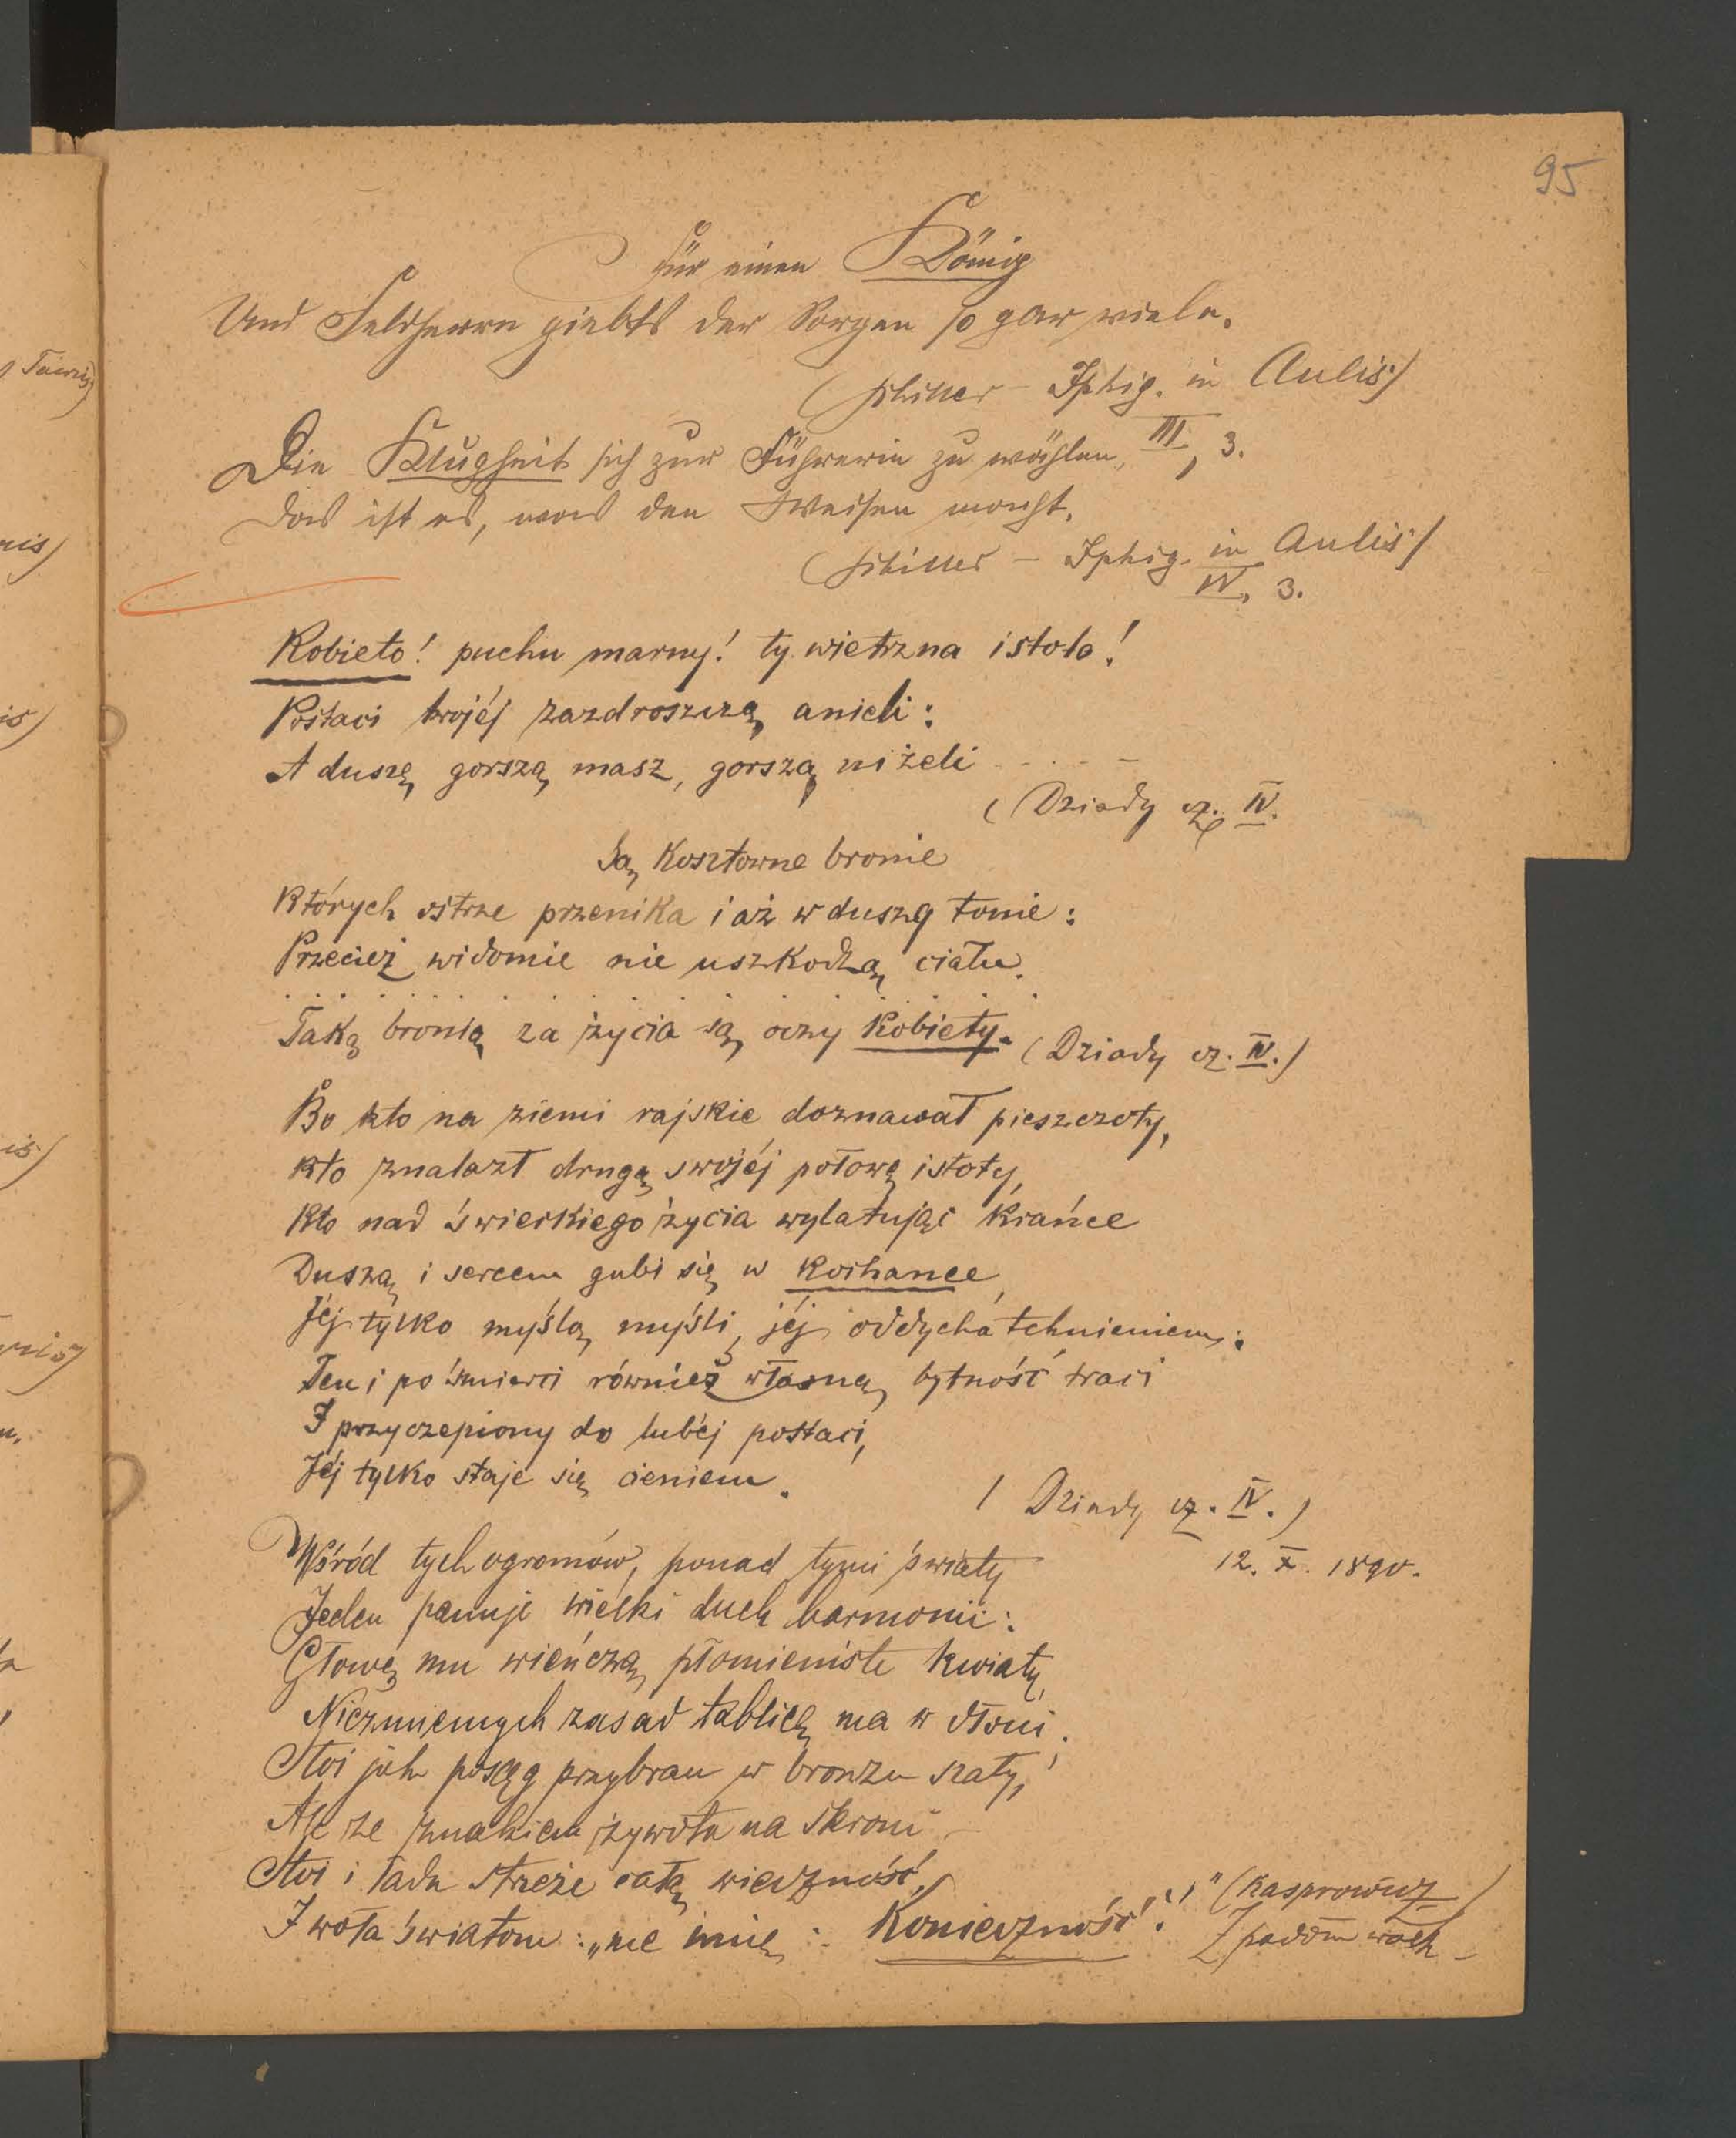 95
Für einen König
Und Feldherrn giebts der Sorgen so gar viele.
(Schiller – Iphig. in Aulis)
III, 3.
Die Klugheit sich zur Führerin zu wählen,
Das ist es, was den Weisen macht.
(Schiller – Iphig. in Aulis)
IV, 3.
Kobieto! puchu marny! ty wietrzna istoto!
Postaci twojéj zazdroszczą anieli:
A duszę gorszą masz, gorszą niżeli - . . . –
(Dziady cz. IV.
Są kosztowne bronie
Których ostrze przenika i aż w duszę tonie:
Przecież widomie nie uszkodzą ciału.
. . . . . . . . . . . . . . . . .
Taką bronią za życia są oczy kobiety. (Dziady cz. IV.)
Bo kto na ziemi rajskie doznawał pieszczoty,
Kto znalazł drugą swojéj połowę istoty,
Kto nad świeckiego życia wylatując krańce
Duszą i sercem gubi się w kochance,
Jéj tylko myślą myśli, jéj oddycha tchnieniem;
Ten i po śmierci również własną bytność traci
I przyczepiony do lubéj postaci,
Jéj tylko staje się cieniem.
( Dziady cz. IV. )
12. X. 1890.
Wśród tych ogromów, ponad tymi światy
Jeden panuje wielki duch harmonii:
Głowę mu wieńczą płomieniste kwiaty,
Niezmiennych zasad tablicę ma w dłoni;
Stoi jak posąg przybran w bronzu szaty,
Ale ze znakiem żywota na skroni –
Stoi i ładu strzeże całą wieczność,
I woła światom: „me imię: Konieczność!" (Kasprowicz
Z padołu walk –)